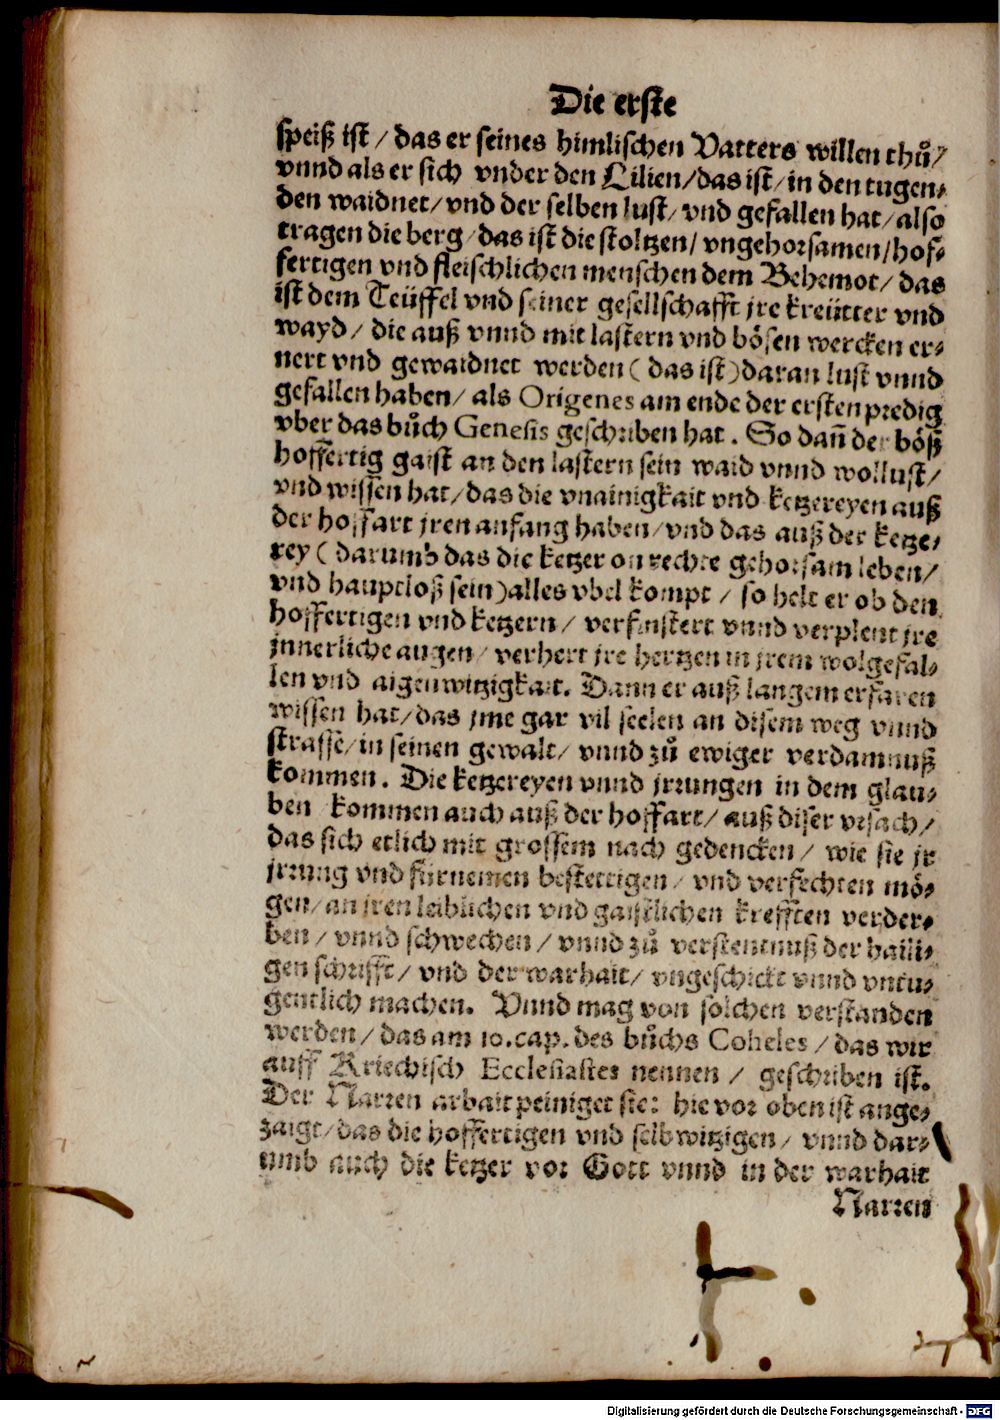 Die erste
speiß ist / das er seines himlischen Vatters willen thuͦ /
vnnd als er sich vnder den Lilien / das ist / in den tugen⸗
den waidnet / vnd der selben lust / vnd gefallen hat / also
tragen die berg / das ist die stoltzen / vngehorsamen / hof⸗
fertigen vnd fleischlichen menschen dem Behemot / das
ist dem Teüffel vnd seiner gesellschafft jre kreütter vnd
wayd / die auß vnnd mit lastern vnd bösen wercken er⸗
nert vnd gewaidnet werden ( das ist ) daran lust vnnd
gefallen haben / als Origenes am ende der ersten predig
vber das buͦch Genesis geschriben hat . So dañ der böß
hoffertig gaist an den lastern sein waid vnnd wollust /
vnd wissen hat / das die vnainigkait vnd ketzereyen auß
der hoffart jren anfang haben / vnd das auß der ketze⸗
rey ( darumb das die ketzer on rechte gehorsam leben /
vnd hauptloß sein ) alles vbel kompt / so helt er ob den
hoffertigen vnd ketzern / verfinstert vnnd verplent jre
jnnerliche augen / verhert jre hertzen in jrem wolgefal⸗
len vnd aigenwitzigkait. Dann er auß langem erfaren
wissen hat / das jme gar vil seelen an disem weg vnnd
strasse / in seinen gewalt / vnnd zuͦ ewiger verdamnuß
kommen . Die ketzereyen vnnd jrrungen in dem glau⸗
ben kommen auch auß der hoffart / auß diser vrsach /
das sich etlich mit grossem nach gedencken / wie sie jr
jrrung vnd fürnemen bestettigen / vnd verfechten mö⸗
gen / an jren leiblichen vnd gaistlichen krefften verder⸗
ben / vnnd schwechen / vnnd zuͦ verstentnuß der haili⸗
gen schrifft / vnd der warhait / vngeschickt vnnd vntu⸗
gentlich machen. Vnnd mag von solchen verstanden
werden / das am 10. cap. des buͦchs Coheles / das wir
auff Kriechisch Ecclesiastes nennen / geschriben ist.
Der Narren arbait peiniget sie: hie vor oben ist ange⸗
zaigt / das die hoffertigen vnd selbwitzigen / vnnd dar⸗
umb auch die ketzer vor Gott vnnd in der warhait
Narren
Digitalisierung gefördert durch die Deutsche Forschungsgemeinschaft - DFG